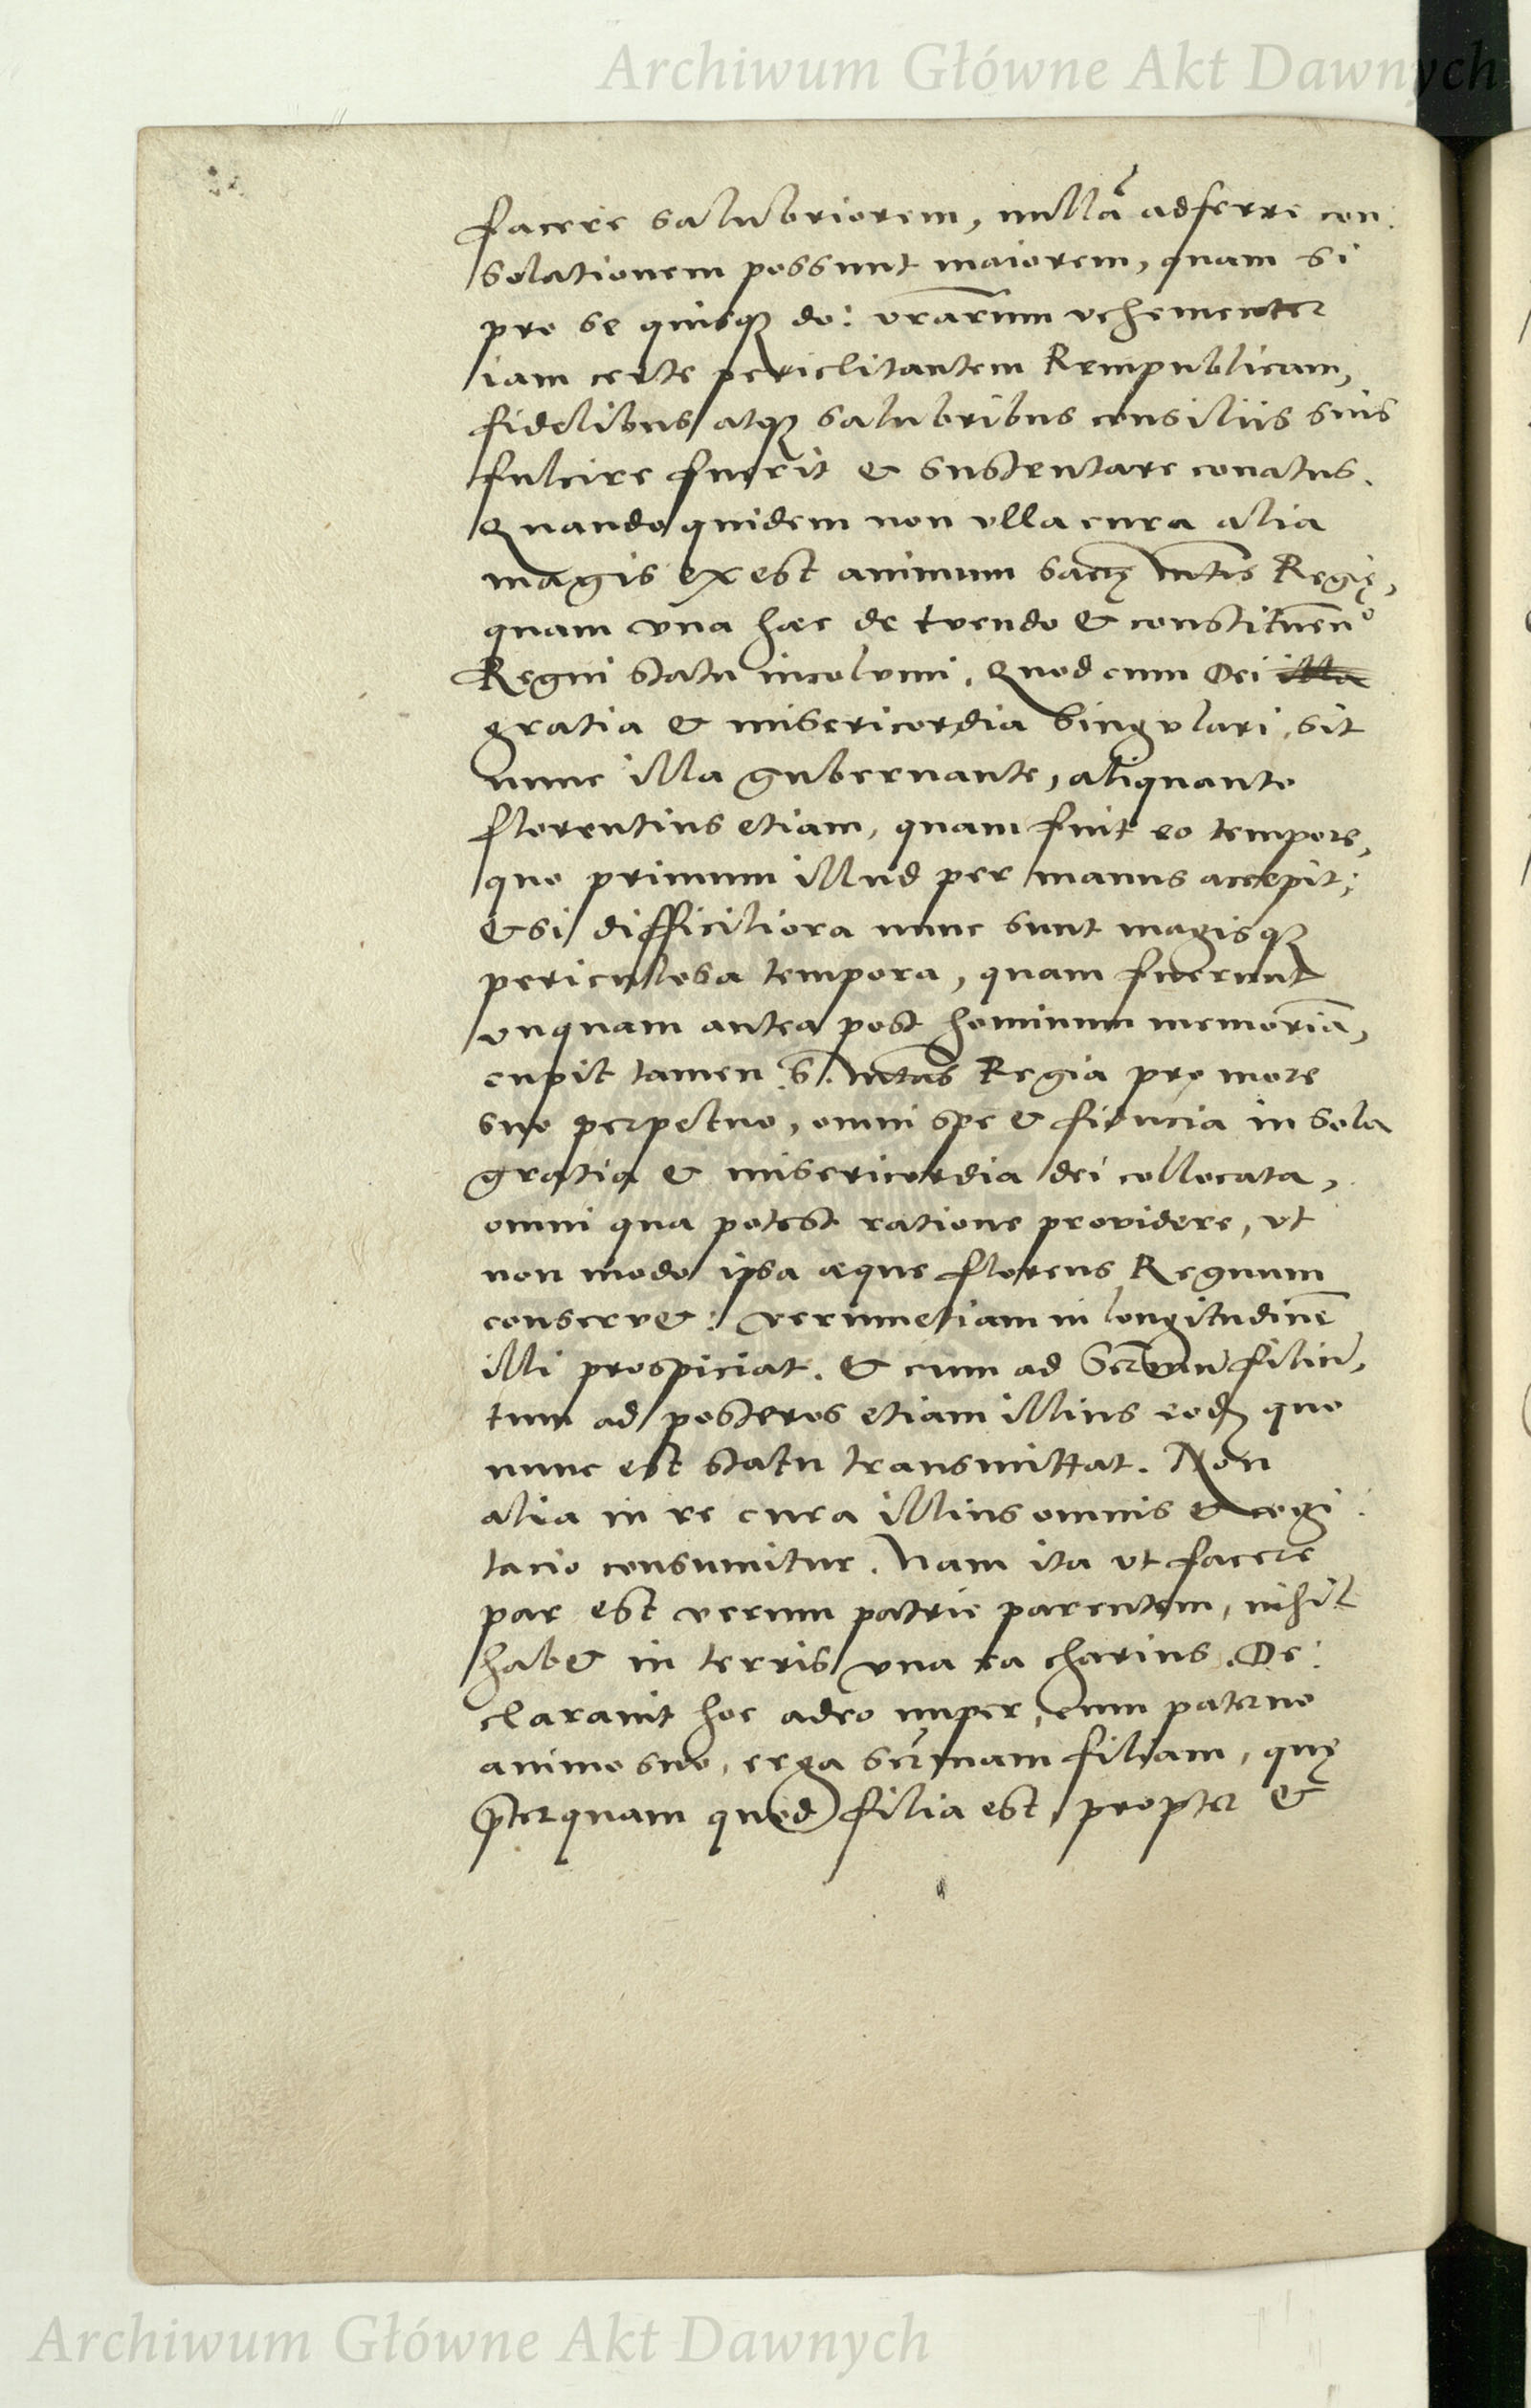 Archiwum Główne Akt Dawnych
facere salubriorem, nullā adferre con:
solationem possunt maiorem, quam si
pro se quisqꝫ do: vrarum vehementer
iam certe periclitantem Rempublicam,
fidelibus atqꝫ salubribus consiliis suis
fulcire fuerit & sustentare conatus.
Quandoquidem non vlla cura alia
magis exest animum sacrę Mtis Regię,
quam vna hæc de tuendo & constituēn°
Regni statu incolumi. Quod cum Dei illa
gratia & misericordia singulari, sit
nunc illa gubernante, aliquanto
florentius etiam, quam fuit eo tempore,
quo primum illud per manus accepit;
etsi difficiliora nunc sunt magisqꝫ
periculosa tempora, quam fuerunt
vnquam antea post hominum memoriā,
cupit tamen S. Mtas Regia pro more
suo perpetuo, omni spe & fiducia in sola
gratia & misericordia dei collocata,
omni qua potest ratione providere, vt
non modo ipsa æque florens Regnum
conserv&: verumetiam in longitudinē
illi prospiciat. & cum ad Sermum filiū,
tum ad posteros etiam illius eodꝫ quo
nunc est statu transmittat. Non
alia in re cura illius omnis & cogi:
tacio consumitur. Nam ita vt facere
par est verum patrie parentem, nihil
hab& in terris vna ea charius. De:
claravit hoc adeo nuper, cum paterno
animo suo, erga sermam filiam, quę
p̄terquam quod filia est, propter &
Archiwum Główne Akt Dawnych